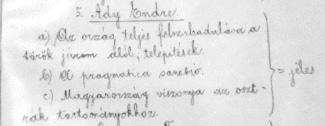 5. Ady Endre.
a) Az ország teljes felszabadulása a
török járom alól, telepítések.
b) A pragmatica sanctio.
c) Magyarország viszonya az oszt-
rák tartományokhoz.
= jeles